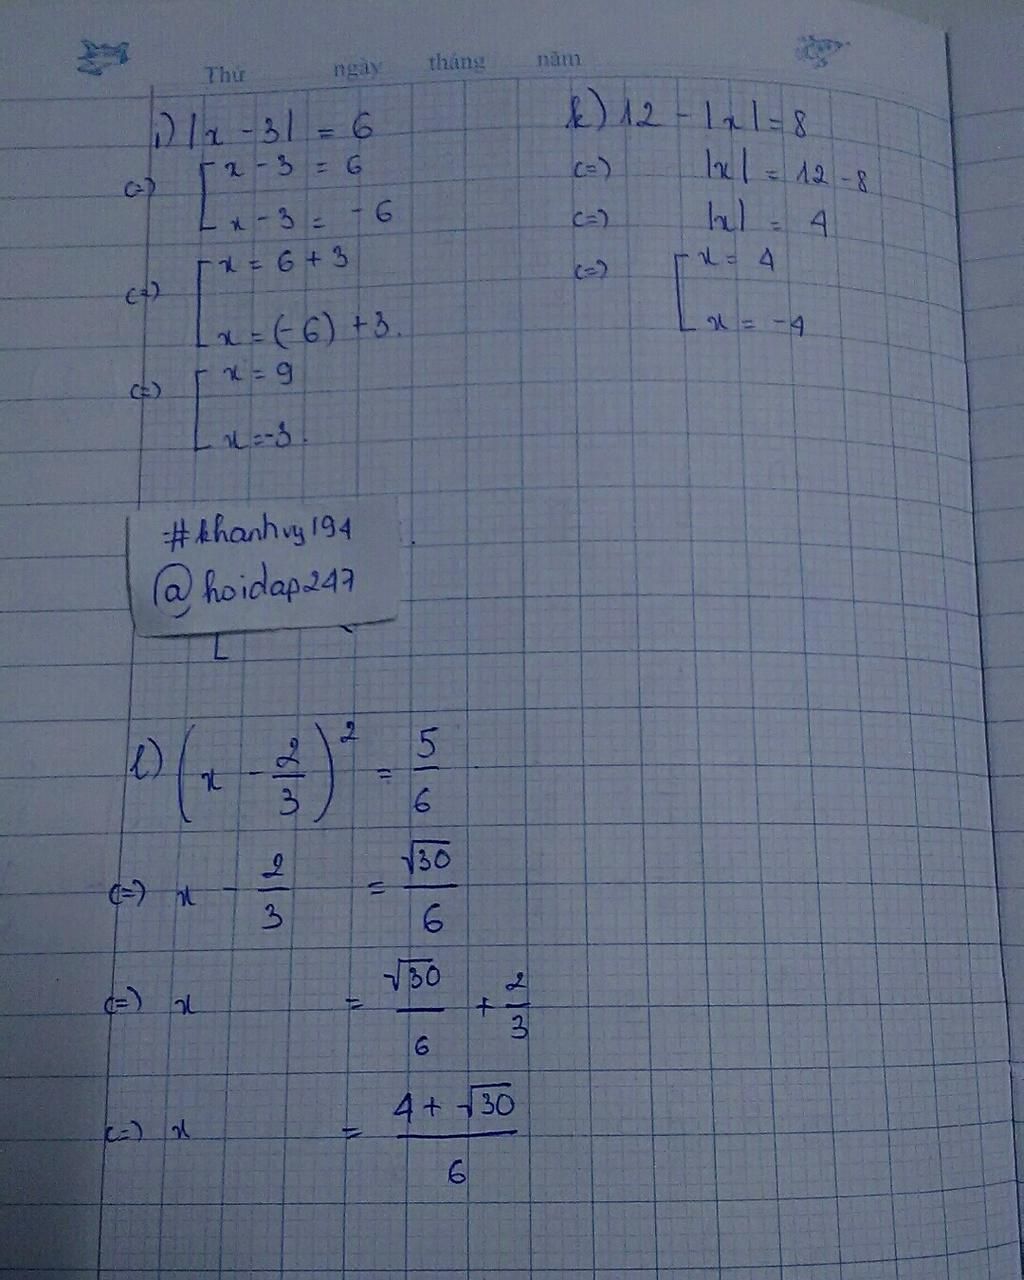 Thứ ngày tháng năm
i) |x - 3| = 6
(=) [ x - 3 = 6
x - 3 = -6
(=) [ x = 6 + 3
x = (-6) + 3.
(=) [ x = 9
x = -3.
k) 12 - |x| = 8
(=) |x| = 12 - 8
(=) |x| = 4
(=) [ x = 4
x = -4
#khanhvy194
@hoidap247
l) (x - 2/3)² = 5/6
(=) x - 2/3 = √30/6
(=) x = √30/6 + 2/3
(=) x = (4 + √30)/6